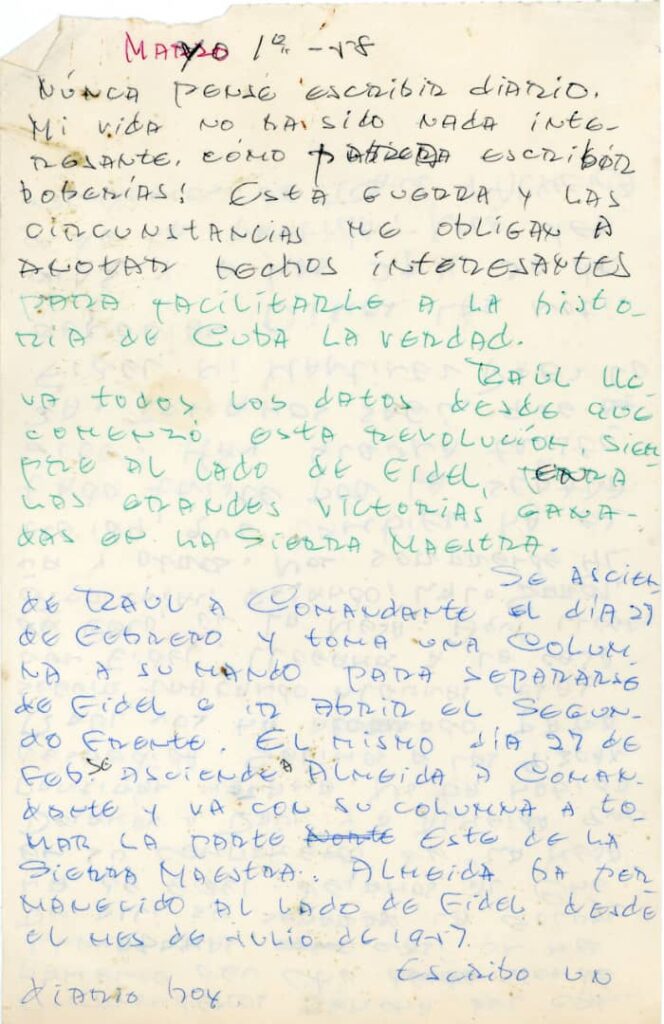 MARZO 1º. -58
NÚNCA PENSÉ ESCRIBIR DIARIO.
MI VIDA NO HA SIDO NADA INTE-
RESANTE. CÓMO PARA ESCRIBIR
BOBERÍAS! ESTA GUERRA Y LAS
CIRCUNSTANCIAS ME OBLIGAN A
ANOTAR HECHOS INTERESANTES
PARA FACILITARLE A LA HISTO-
RIA DE CUBA LA VERDAD.
RAÚL LLE
VA TODOS LOS DATOS DESDE QUE
COMENZÓ ESTA REVOLUCIÓN. SIEM
PRE AL LADO DE FIDEL, PARA
LAS GRANDES VICTORIAS GANA-
DAS EN LA SIERRA MAESTRA.
SE ASCIEN
DE RAÚL A COMANDANTE EL DÍA 27
DE FEBRERO Y TOMA UNA COLUM
NA A SU MANDO PARA SEPARARSE
DE FIDEL E IR ABRIR EL SEGUN-
DO FRENTE. EL MISMO DÍA 27 DE
FEB SE ASCIENDE A ALMEIDA A COMAN-
DANTE Y VA CON SU COLUMNA A TO-
MAR LA PARTE NORTE ESTE DE LA
SIERRA MAESTRA. ALMEIDA HA PER
MANECIDO AL LADO DE FIDEL DESDE
EL MES DE JULIO DE 1957.
ESCRIBO UN
DIARIO HOY.